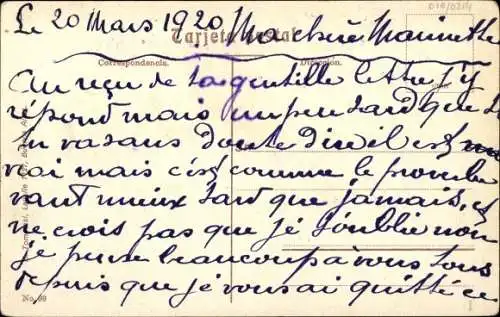 Le 20 Mars 1920 Ma chère Marinette
Tarjeta Postal
Correspondencia. Dirección.
Au reçu de ta gentille lettre j'y
répond mais un peu tard que
tu vas sans doute dire il est
vrai mais c'est comme le proverbe
vaut mieux tard que jamais, et
ne crois pas que je t'oublie non
je pense beaucoup à vous tous
depuis que je vous ai quitté ce
No. 99